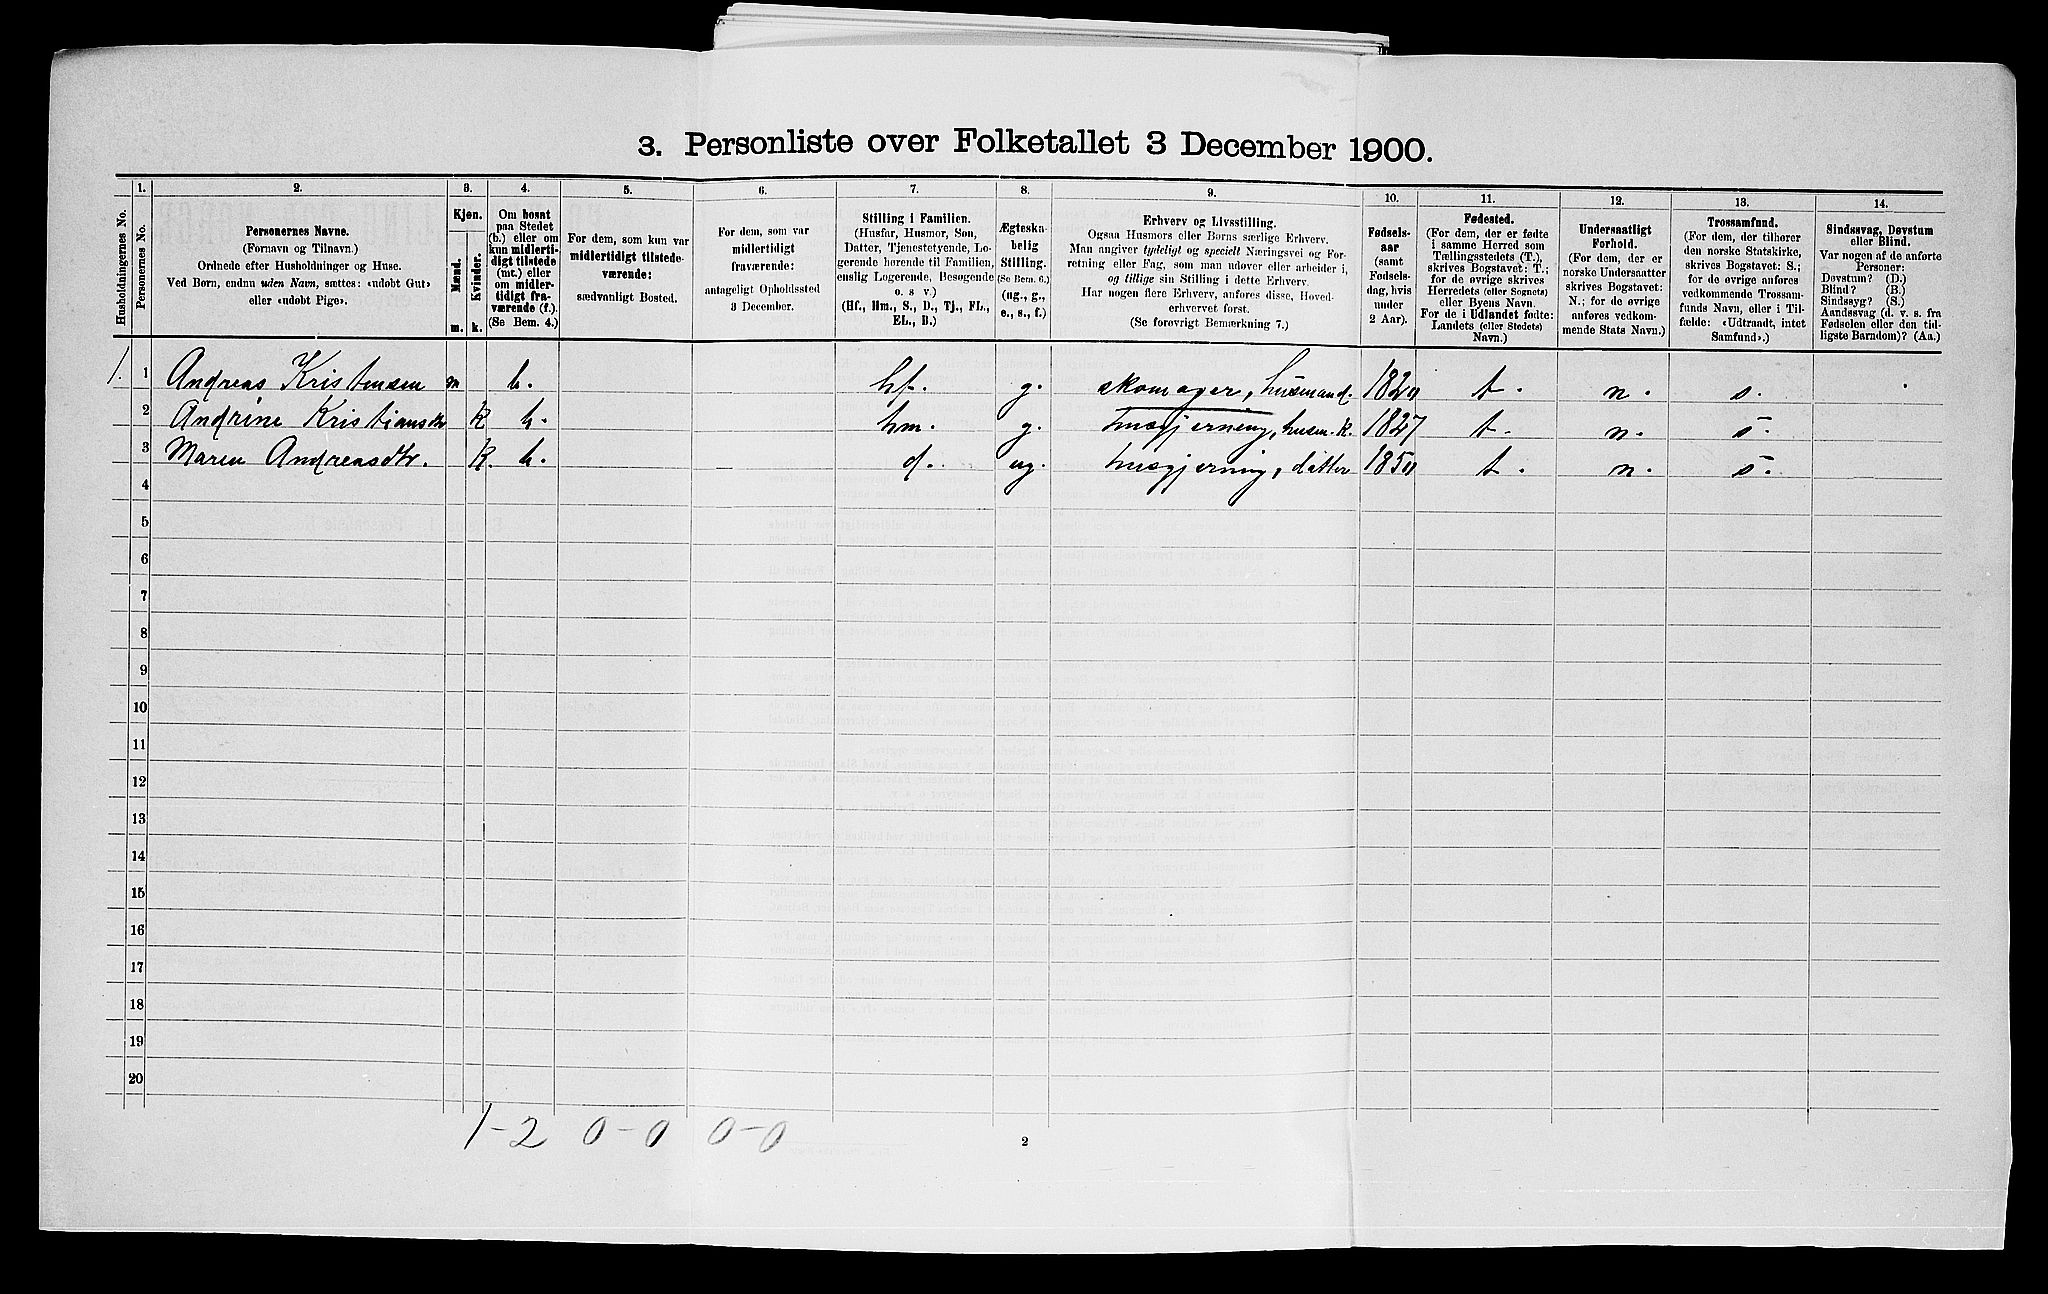 3. Personliste over Folketallet 3 December 1900.
Husholdningernes No.
1.
Personernes No.
2.
Personernes Navne.
(Fornavn og Tilnavn.)
Ordnede efter Husholdninger og Huse.
Ved Børn, endnu uden Navn, sættes: «udøbt Gut»
eller «udøbt Pige».
3.
Kjøn.
Mænd.
Kvinder.
m. k.
4.
Om bosat
paa Stedet
(b.) eller om
kun midlerti-
digt tilstede
(mt.) eller
om midler-
tidigt fra-
værende (f.)
(Se Bem. 4.)
5.
For dem, som kun var
midlertidigt tilstede-
værende:
sædvanligt Bosted.
6.
For dem, som var
midlertidigt
fraværende:
antageligt Opholdssted
3 December.
7.
Stilling i Familien.
(Husfar, Husmor, Søn,
Datter, Tjenestetyende, Lo-
gerende hørende til Familien,
enslig Logerende, Besøgende
o. s v.)
(Hf., Hm., S., D., Tj., FL.,
EL., B.)
8.
Ægteska-
belig
Stilling.
(Se Bem. 6.)
(ug., g.,
e., s., f.)
9.
Erhverv og Livsstilling.
Ogsaa Husmors eller Børns særlige Erhverv.
Man angiver tydeligt og specielt Næringsvei og For-
retning eller Fag, som man udøver eller arbeider i,
og tillige sin Stilling i dette Erhverv.
Har nogen flere Erhverv, anføres disse, Hoved-
erhvervet først.
(Se forøvrigt Bemærkning 7.)
10.
Fødsels-
aar
(samt
Fødsels-
dag, hvis
under
2 Aar).
11.
Fødested.
(For dem, der er fødte
i samme Herred som
Tællingsstedets (T.),
skrives Bogstavet: T.;
for de øvrige skrives
Herredets (eller Sognets)
eller Byens Navn.
For de i Udlandet fødte:
Landets (eller Stedets)
Navn.)
12.
Undersaatligt
Forhold.
(For dem, der er
norske Undersaatter
skrives Bogstavet:
N.; for de øvrige
anføres vedkom-
mende Stats Navn.)
13.
Trossamfund.
(For dem, der tilhører
den norske Statskirke,
skrives Bogstavet: S.;
for de øvrige anføres
vedkommende Trossam-
funds Navn, eller i Til-
fælde: «Udtraadt, intet
Samfund».)
14.
Sindssvag, Døvstum
eller Blind.
Var nogen af de anførte
Personer:
Døvstum? (D.)
Blind? (B.)
Sindssyg? (S.)
Aandssvag (d. v. s. fra
Fødselen eller den tid-
ligste Barndom)? (Aa.)
1. 1 Andreas Kristensen m b. hf. g. skomager, husmand. t. n. s.
2 Andrine Kristiansdtr k b. hm. g. husgjerning, husm. k. 1827 t. n. s.
3 Maren Andreasdtr. k. b. d. ug. husgjerning, datter t. n. s.
4
5
6
7
8
9
10
11
12
13
14
15
16
17
18
19
20
1-2 0-0 0-0
2